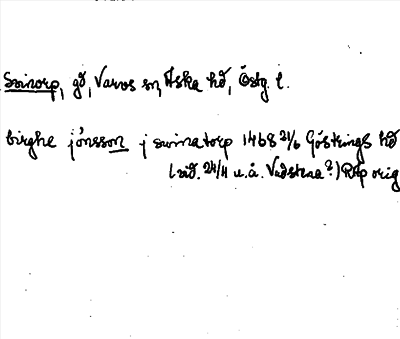 Svinorp, gd, Varvs sn, Aska hd, Östg. l.
birghe jónsson j swinatorp 1468 21/6 Göstrings hd
(vid. 24/11 u.å. Vadstena?) RAp orig